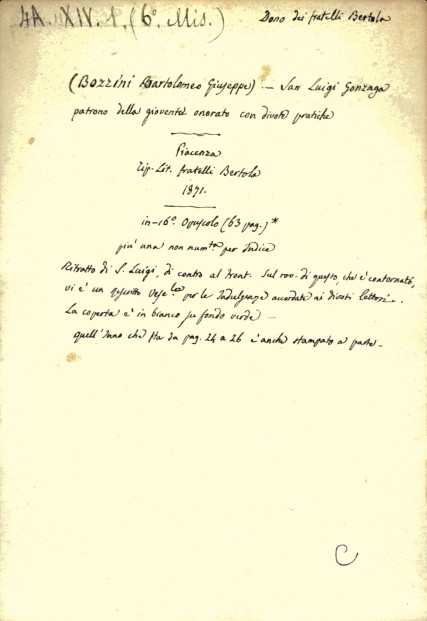 4A. XIV. 1. (6°. Mis.)
Dono dei fratelli Bertola
(Bozzini Bartolomeo Giuseppe) — San Luigi Gonzaga
patrono della gioventù onorato con divote pratiche
Piacenza
Tip. Lit. fratelli Bertola
1871.
in-16° Opuscolo (63 pag.) *
più una non num.ta per Indice
Ritratto di S. Luigi, di contro al Front. Sul rov. di questo, che è contornato,
vi è un rescritto Vesc.le per le Indulgenze accordate ai divoti lettori.
La coperta è in bianco su fondo verde —
quell'Inno che sta da pag. 24 a 26 è anche stampato a parte.
C